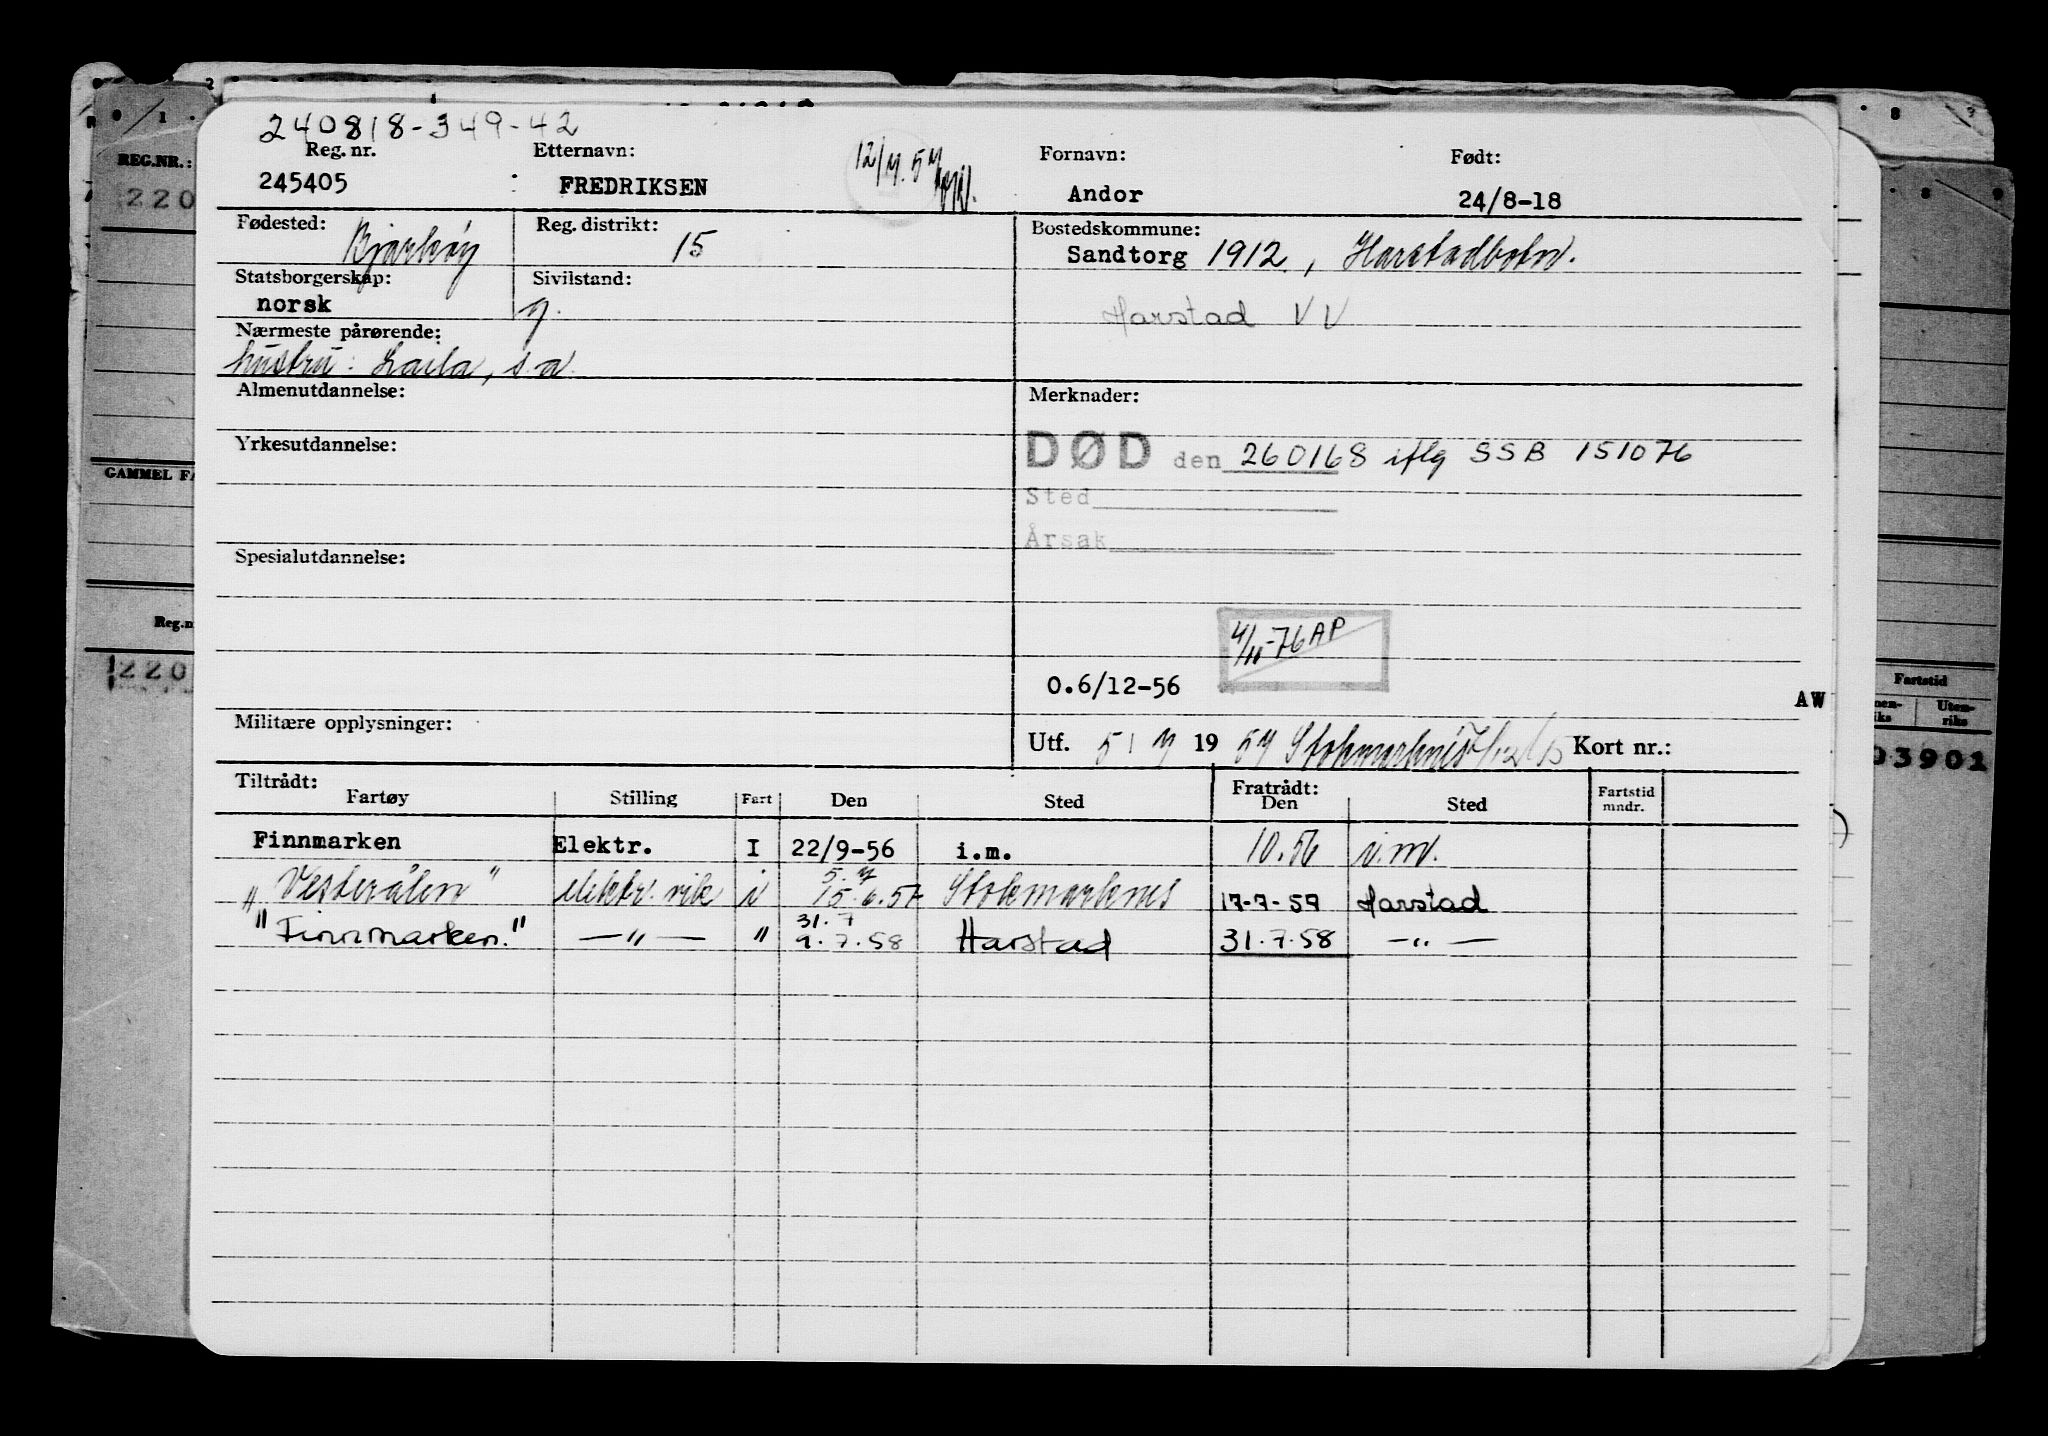 240818-349-42
Reg. nr. Etternavn: Fornavn: Født:
245405 FREDRIKSEN 12/7.57 Andor 24/8-18
Fødested: Bjarkøy Reg. distrikt: 15 Bostedskommune:
Sandtorg 1912, Harstadbotn.
Statsborgerskap: Sivilstand:
norsk g. Harstad VV
Nærmeste pårørende:
hustru: Laila, s.a.
Almenutdannelse: Merknader:
Yrkesutdannelse: DØD den 260168 iflg SSB 151076
Sted
Årsak
Spesialutdannelse:
4/11-76 AP
0.6/12-56
AW
Militære opplysninger: Utf. 5/7 1957 Stokmarknes Kort nr.:
Tiltrådt: Fratrådt:
Fartøy Stilling Fart Den Sted Den Sted Fartstid mndr.
Finnmarken Elektr. I 22/9-56 i.m. 10.56 i.m.
5.7
"Vesterålen" elektr. i 15.6.57 Stokmarknes 17-7-57 Harstad
31.7
"Finnmarken." —"— " 9.7.58 Harstad 31.7.58 —"—
REG.NR.:
220
GAMMEL FA
Reg.n
220
8
8 9
Fartstid
Uten-
riks
03901